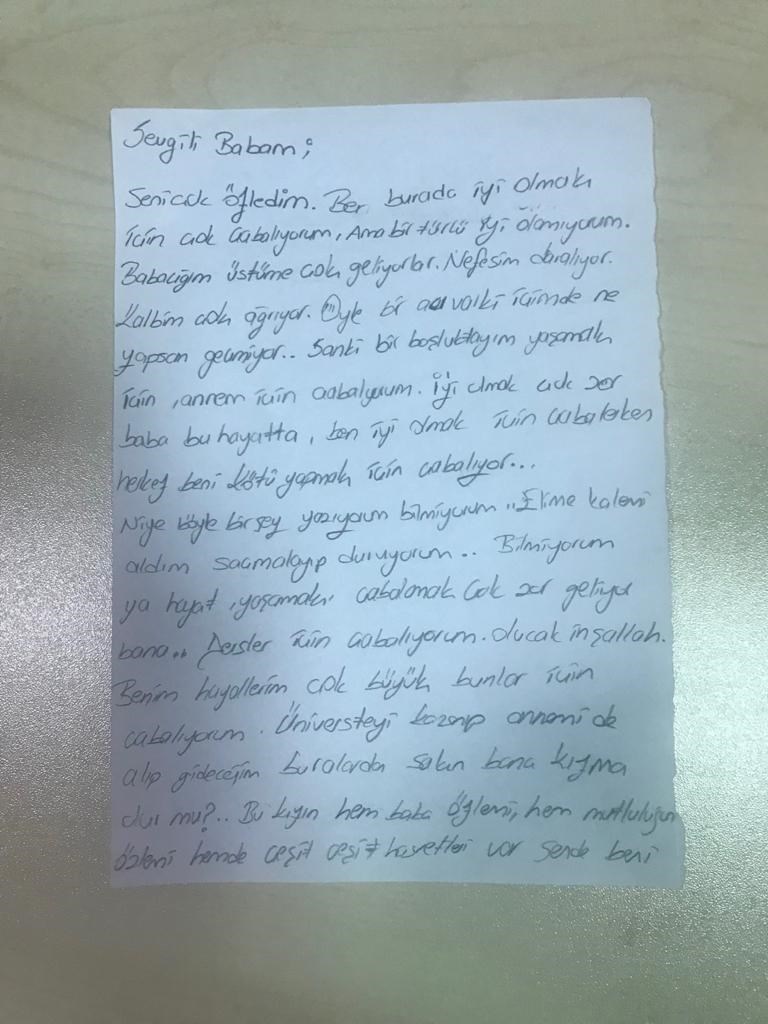 Sevgili Babam;
Seni çok özledim. Ben burada iyi olmak
için çok çabalıyorum, Ama bir türlü iyi olamıyorum.
Babacığım üstüme çok geliyorlar. Nefesim daralıyor.
Kalbim çok ağrıyor. Öyle bir acı varki içimde ne
yapsam geçmiyor.. Sanki bir boşluktayım yaşamak
için, annem için çabalıyorum. İyi olmak çok zor
baba bu hayatta, ben iyi olmak için çabalarken
herkez beni kötü yapmak için çabalıyor...
Niye böyle bir şey yazıyorum bilmiyorum.. Elime kalemi
aldım saçmalayıp duruyorum.. Bilmiyorum
ya hayat, yaşamak, çabalamak çok zor geliyor
bana.. Dersler için çabalıyorum. olucak inşallah.
Benim hayallerim çok büyük bunlar için
çabalıyorum. Üniversteyi kazanıp annemi de
alıp gideceğim buralarda sakın bana kızma
olur mu?.. Bu kızın hem baba özlemi, hem mutluluğun
özlemi hemde çeşit çeşit hasretleri var sende beni